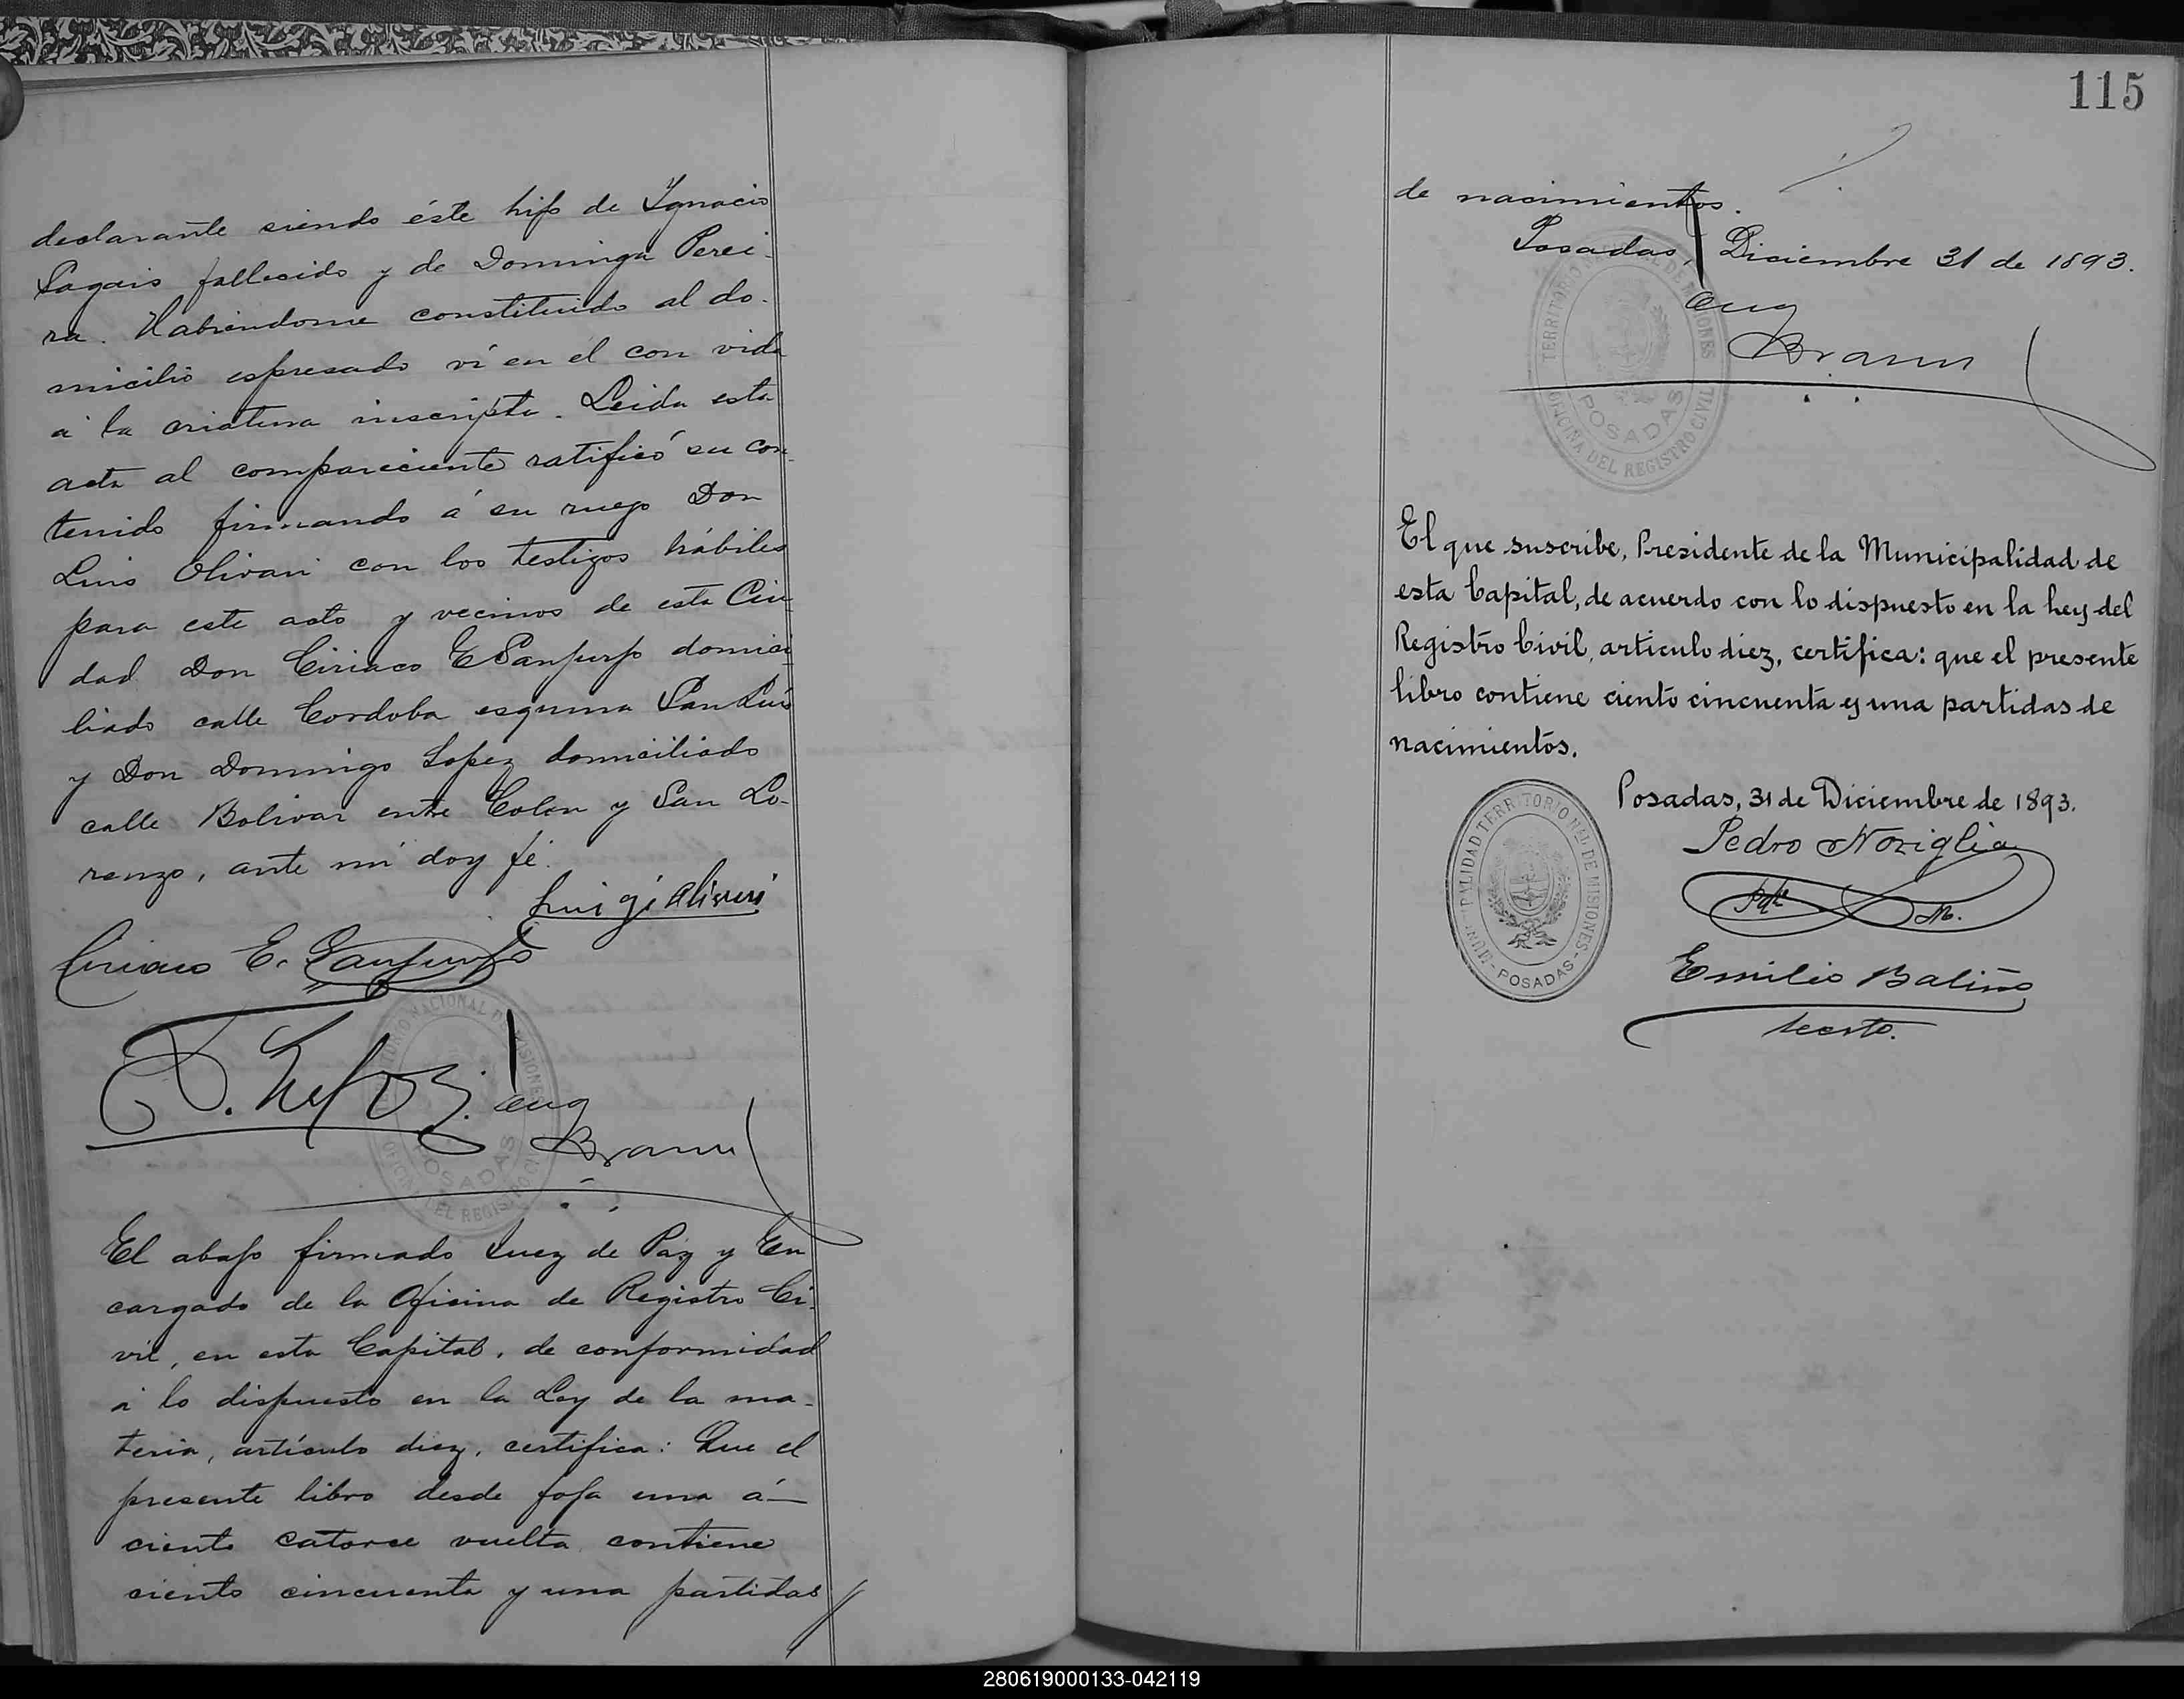 declarante siendo éste hijo de Ygnacio
Pagais fallecido y de Dominga Perei-
ra. Habiendome constituido al do-
micilio espresado ví en él con vida
á la criatura inscripta. Leida esta
acta al compareciente ratificó su con-
tenido firmando á su ruego Don
Luis Olivari con los testigos hábiles
para este acto y vecinos de esta Ciu-
dad Don Ciriaco E Sanjurjo domici-
liado calle Cordoba esquina San Luis
y Don Domingo Lopez domiciliado
calle Bolivar entre Colon y San Lo-
renzo, ante mí doy fé.
Luigi Oliveri
Ciriaco E. Sanjurjo
D. Lopez
Eug
Braun
El abajo firmado Juez de Paz y En
cargado de la Oficina de Registro Ci-
vil, en esta Capital, de conformidad
á lo dispuesto en la Ley de la ma-
teria, artículo diez, certifica: Que el
presente libro desde foja una á
ciento catorce vuelta contiene
ciento cincuenta y una partidas //
115
de nacimientos.
Posadas, Diciembre 31 de 1893.
Eug
Braun
TERRITORIO NACIONAL DE MISIONES
POSADAS
OFICINA DEL REGISTRO CIVIL
El que suscribe, Presidente de la Municipalidad de
esta Capital, de acuerdo con lo dispuesto en la Ley del
Registro Civil, articulo diez, certifica: que el presente
libro contiene ciento cincuenta y una partidas de
nacimientos.
Posadas, 31 de Diciembre de 1893.
Pedro Noziglia
Pdte M.
MUNICIPALIDAD TERRITORIO NAL DE MISIONES
- POSADAS -
Emilio Baliño
Secrto.
280619000133-042119